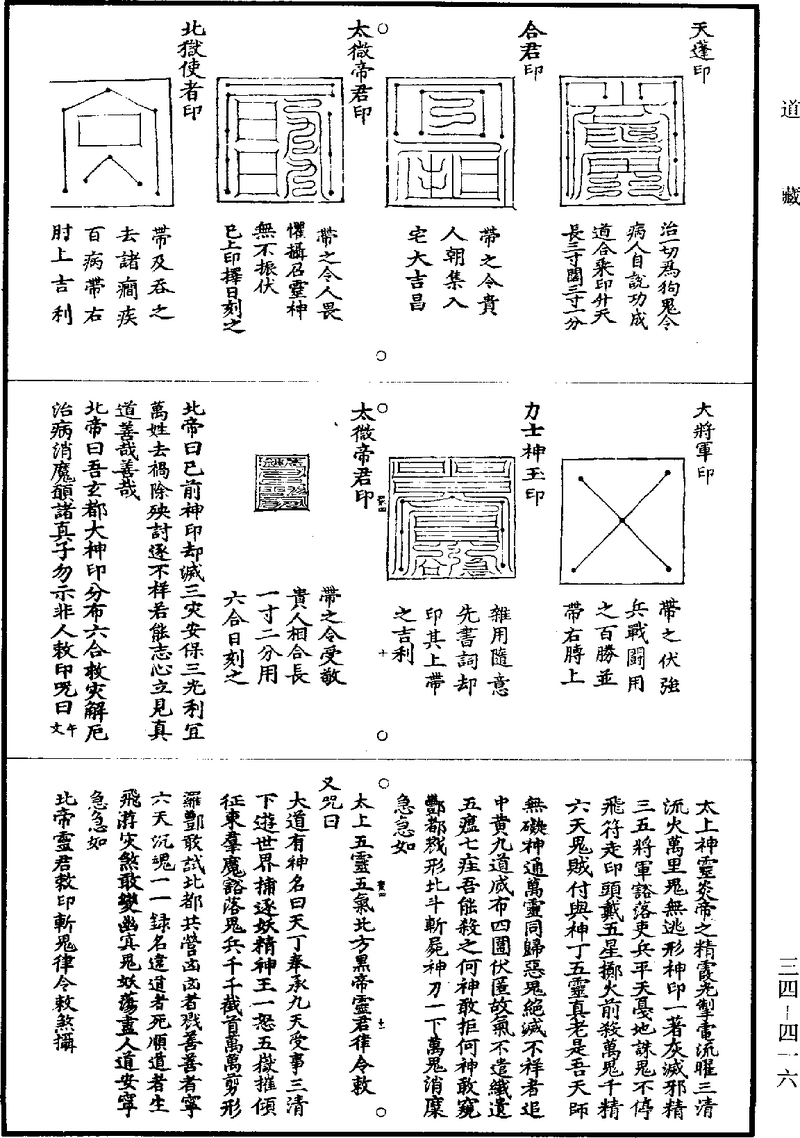 道藏
天蓬印
治一切為狗鬼令
病人自說功成
道合乘印升天
長三寸闊三寸一分
合君印
帶之令貴
人朝集入
宅大吉昌
太微帝君印
帶之令人畏
懼攝召靈神
無不振伏
已上印擇日刻之
北獄使者印
帶及吞之
去諸癎疾
百病帶右
肘上吉利
大將軍印
帶之伏強
兵戰鬭用
之百勝並
帶右膊上
力士神王印
雜用隨意
先書詞却
印其上帶
之吉利
太微帝君印
帶之令受敬
貴人相合長
一寸二分用
六合日刻之
北帝曰已前神印却滅三灾安保三光利宜
萬姓去禍除殃討逐不祥若能志心立見真
道善哉善哉
北帝曰吾玄都大神印分布六合救灾解厄
治病消魔願諸真子勿示非人敕印呪曰
太上神靈炎帝之精霞光掣電流曜三清
流火萬里鬼無逃形神印一著灰滅邪精
三五將軍豁落吏兵平天憂地誅鬼不停
飛符走印頭戴五星擲火前殺萬鬼千精
六天鬼賊付與神丁五靈真老是吾天師
無礙神通萬靈同歸惡鬼絕滅不祥者追
中黃九道威布四圍伏匿故氣不遣纖遺
五瘟七疰吾能殺之何神敢拒何神敢窺
酆都戮形北斗斬屍神刀一下萬鬼消糜
急急如
太上五靈五氣北方黑帝靈君律令敕
又呪曰
大道有神名曰天丁奉承九天受事三清
下遊世界捕逐妖精神王一怒五嶽摧傾
征東羣魔豁落鬼兵千千截首萬萬剪形
羅酆敢試北都共營凶凶者戮善善者寧
六天沉魂一一錄名違道者死順道者生
飛游灾煞敢變幽冥鬼妖蕩盡人道安寧
急急如
北帝靈君敕印斬鬼律令敕煞攝
三四-四一六